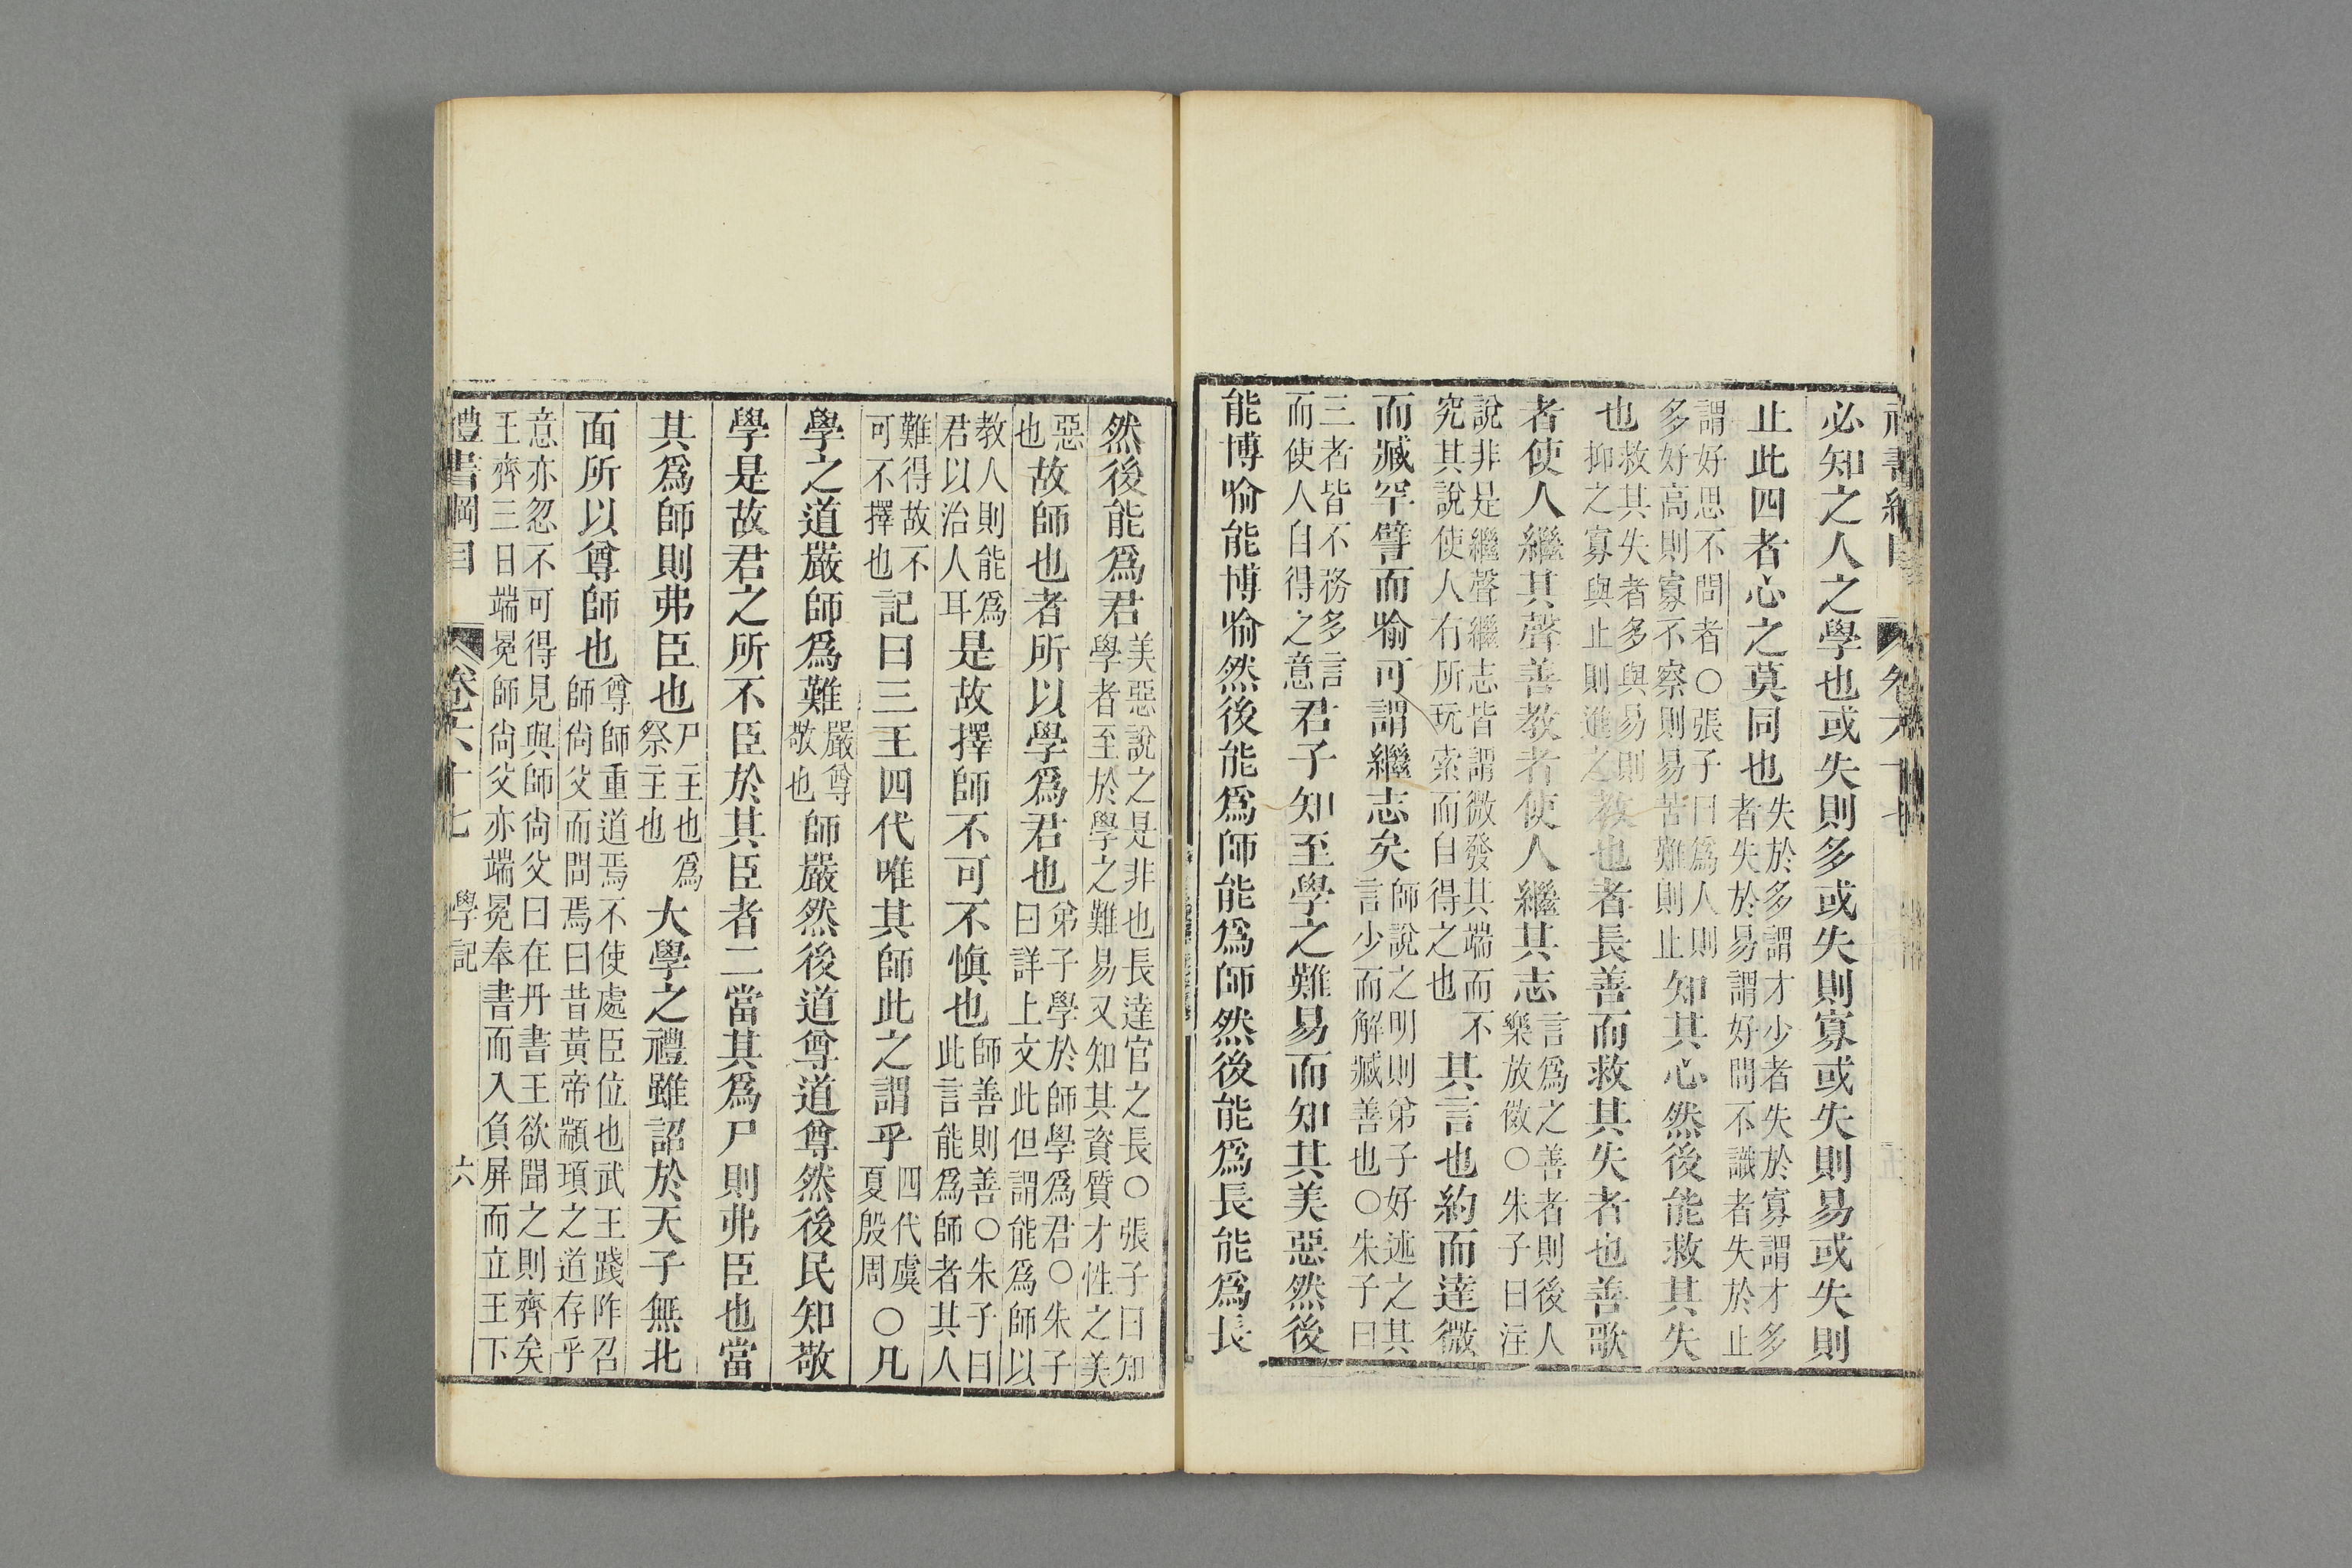 必知之人之學也或失則多或失則寡或失則易或失則
止此四者心之莫同也失於多謂才少者失於寡謂才多者失於易謂好問不識者失於止
謂好思不問者○張子曰爲人則多好高則寡不察則易苦難則止知其心然後能救其失
也救其失者多與易則抑之寡與止則進之教也者長善而救其失者也善歌
者使人繼其聲善教者使人繼其志言爲之善者則後人樂放傚○朱子曰注
說非是繼聲繼志皆謂微發其端而不究其說使人有所玩索而自得之也其言也約而達微
而臧罕譬而喻可謂繼志矣師說之明則弟子好述之其言少而解臧善也○朱子曰
三者皆不務多言而使人自得之意君子知至學之難易而知其美惡然後
能博喻能博喻然後能爲師能爲師然後能爲長能爲長
然後能爲君美惡說之是非也長達官之長○張子曰知學者至於學之難易又知其資質才性之美
惡也故師也者所以學爲君也弟子學於師學爲君○朱子曰詳上文此但謂能爲師以
教人則能爲君以治人耳是故擇師不可不愼也師善則善○朱子曰此言能爲師者其人
難得故不可不擇也記曰三王四代唯其師此之謂乎四代虞夏殷周○凡
學之道嚴師爲難嚴尊敬也師嚴然後道尊道尊然後民知敬
學是故君之所不臣於其臣者二當其爲尸則弗臣也當
其爲師則弗臣也尸主也爲祭主也大學之禮雖詔於天子無北
面所以尊師也尊師重道焉不使處臣位也武王踐阼召師尙父而問焉曰昔黃帝顓頊之道存乎
意亦忽不可得見與師尙父曰在丹書王欲聞之則齊矣王齊三日端冕師尙父亦端冕奉書而入負屏而立王下
禮書綱目　卷六十七　學記　六